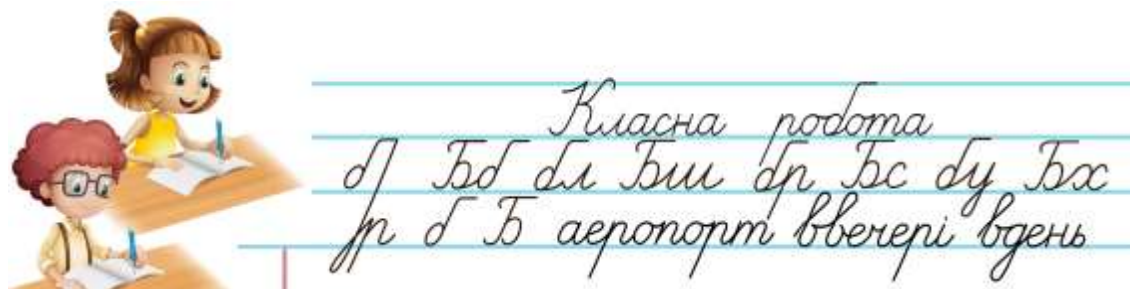 Класна робота
б Бб бл Бш бр Бс бу Бх
р б Б аеропорт ввечері вдень